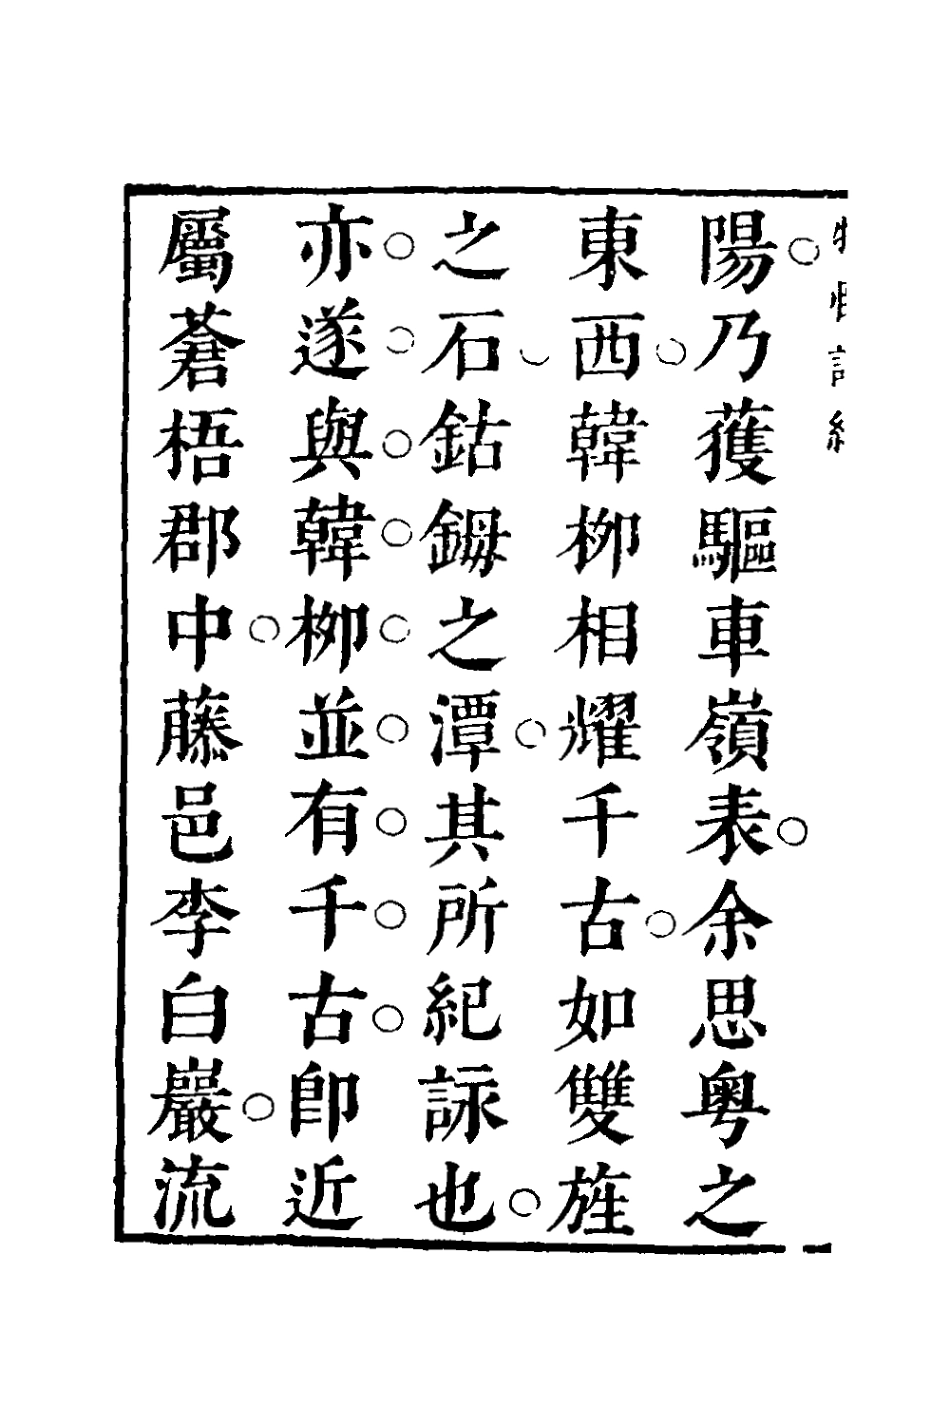 陽○乃獲驅車嶺表○余思粤之
東西○韓栁相耀千古○如雙旌
之石鈷鉧之潭○其所紀詠也○
亦○遂○與○韓○栁○並○有○千○古○卽近
屬蒼梧郡中○藤邑李白巖○流